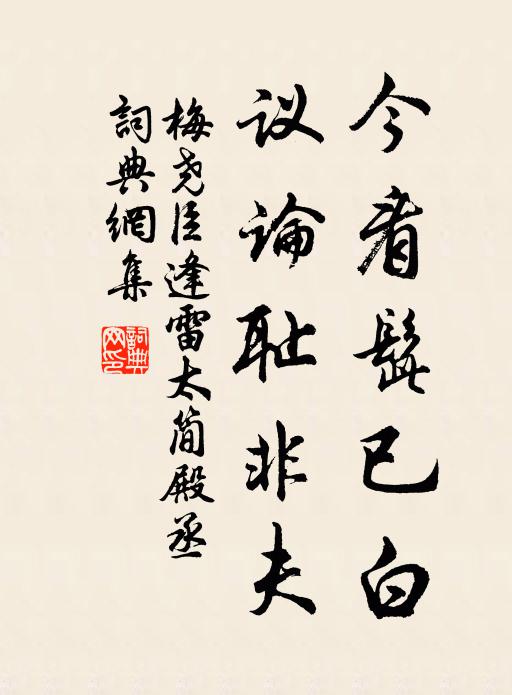 今看髭已白
议論耻非夫
梅尧臣逢雷太简殿丞
詞典網集
詞典网印